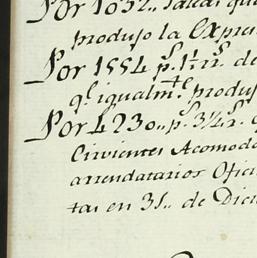 Por 1032,, 
produjo la Expre
Por 1554 p.s 1½ r.s de
q.e igualm.te produj
Por 4230,, p.s 3¼ r.s q
Cirvientes Acomoda
arrendatarios Ofici
tas en 31,, de Dici